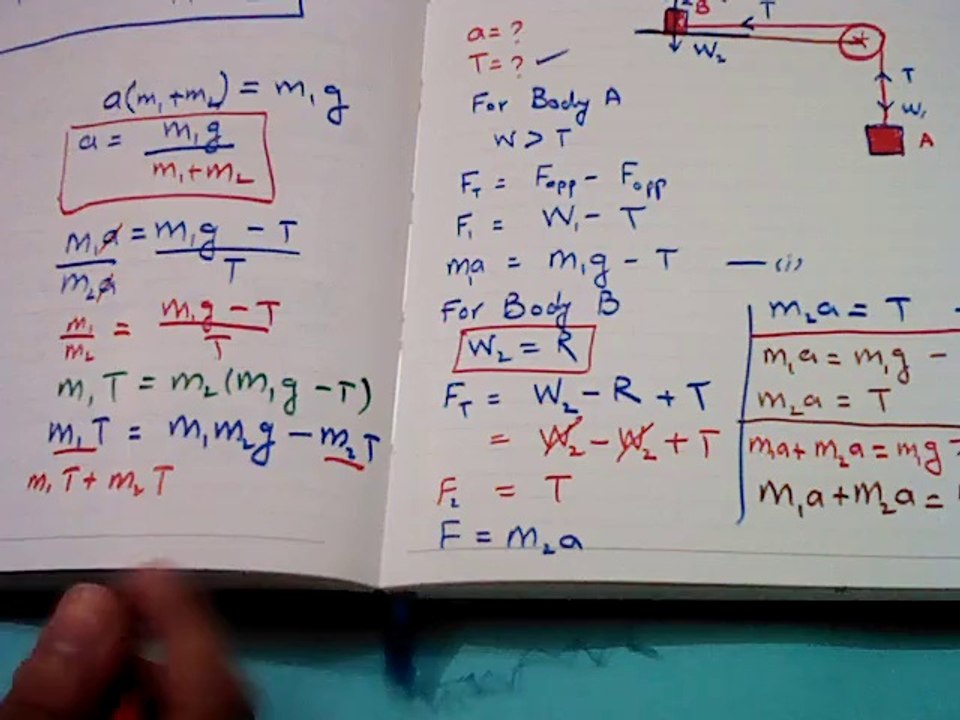 a(m₁+m₂) = m₁g
a = m₁g / m₁+m₂
m₁a / m₂a = m₁g - T / T
m₁ / m₂ = m₁g - T / T
m₁T = m₂(m₁g - T)
m₁T = m₁m₂g - m₂T
m₁T + m₂T
a = ?
T = ? ✓
For Body A
W > T
F_T = F_app - F_opp
F₁ = W₁ - T
m₁a = m₁g - T — (i)
For Body B
W₂ = R
F_T = W₂ - R + T
= W₂ - W₂ + T
F₂ = T
F = m₂a
B
T
W₂
T
W₁
A
m₂a = T -
m₁a = m₁g -
m₂a = T
m₁a + m₂a = m₁g
m₁a + m₂a =